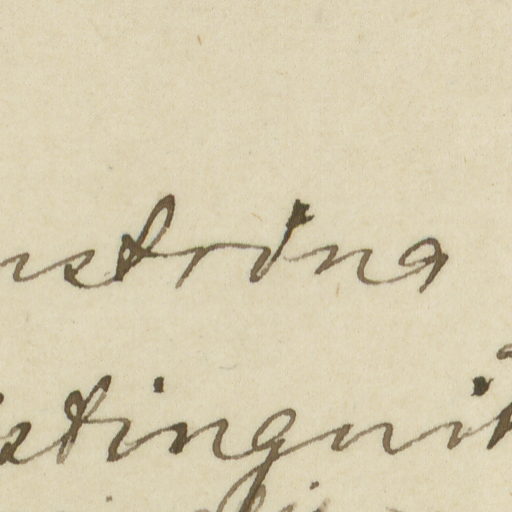 nstrina
stinguit